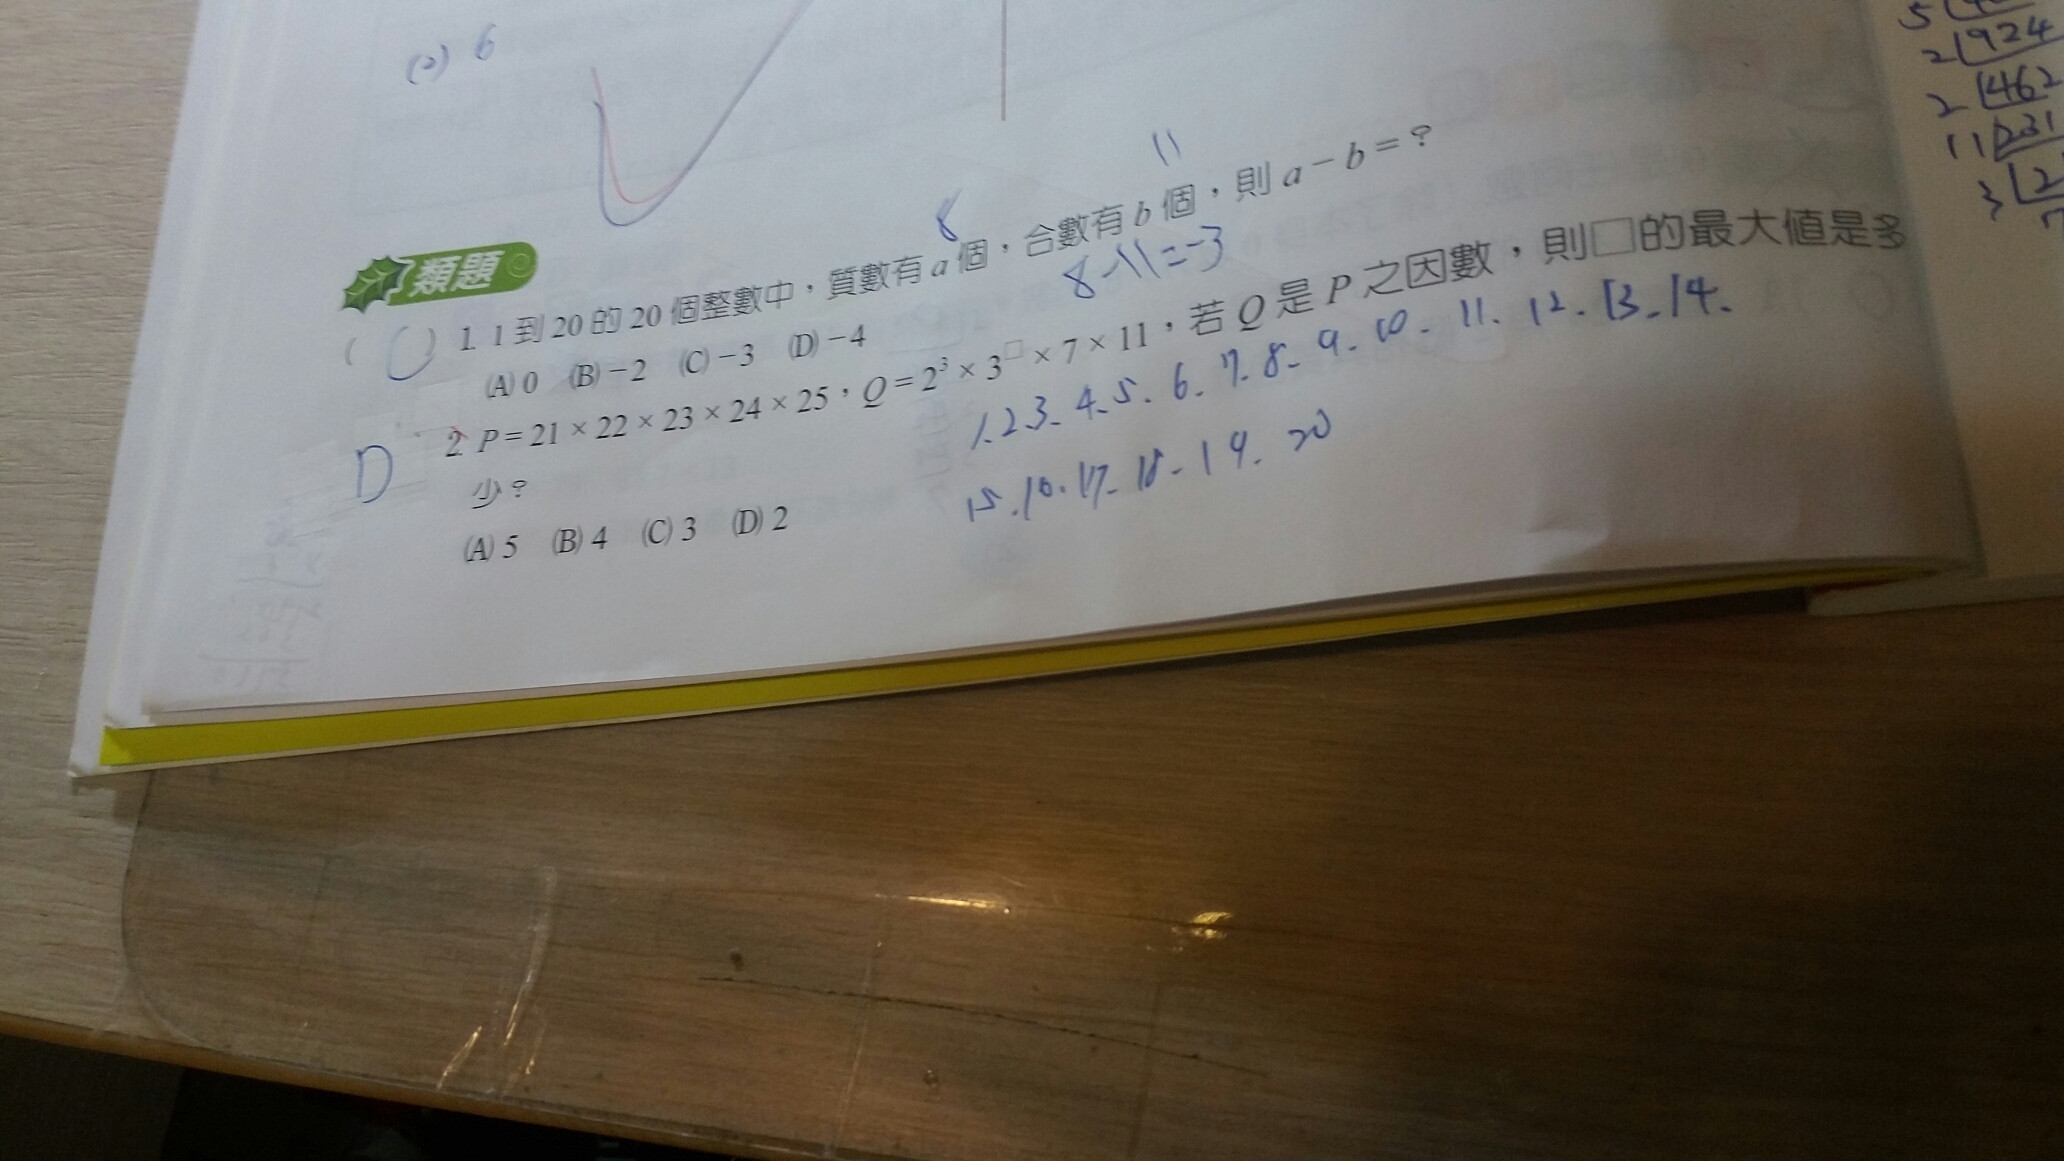 (2) 6
類題
11
8
( C ) 1. 1 到 20 的 20 個整數中，質數有 a 個，合數有 b 個，則 a－b＝？
8-11=-3
(A) 0 (B)－2 (C)－3 (D)－4
D 2. P＝21×22×23×24×25，Q＝2³×3^□×7×11，若 Q 是 P 之因數，則□的最大值是多
少？
(A) 5 (B) 4 (C) 3 (D) 2
1.2.3.4.5.6.7.8.9.10.11.12.13.14.
15.16.17.18.19.20
5
2 924
2 462
11 231
3 2
7